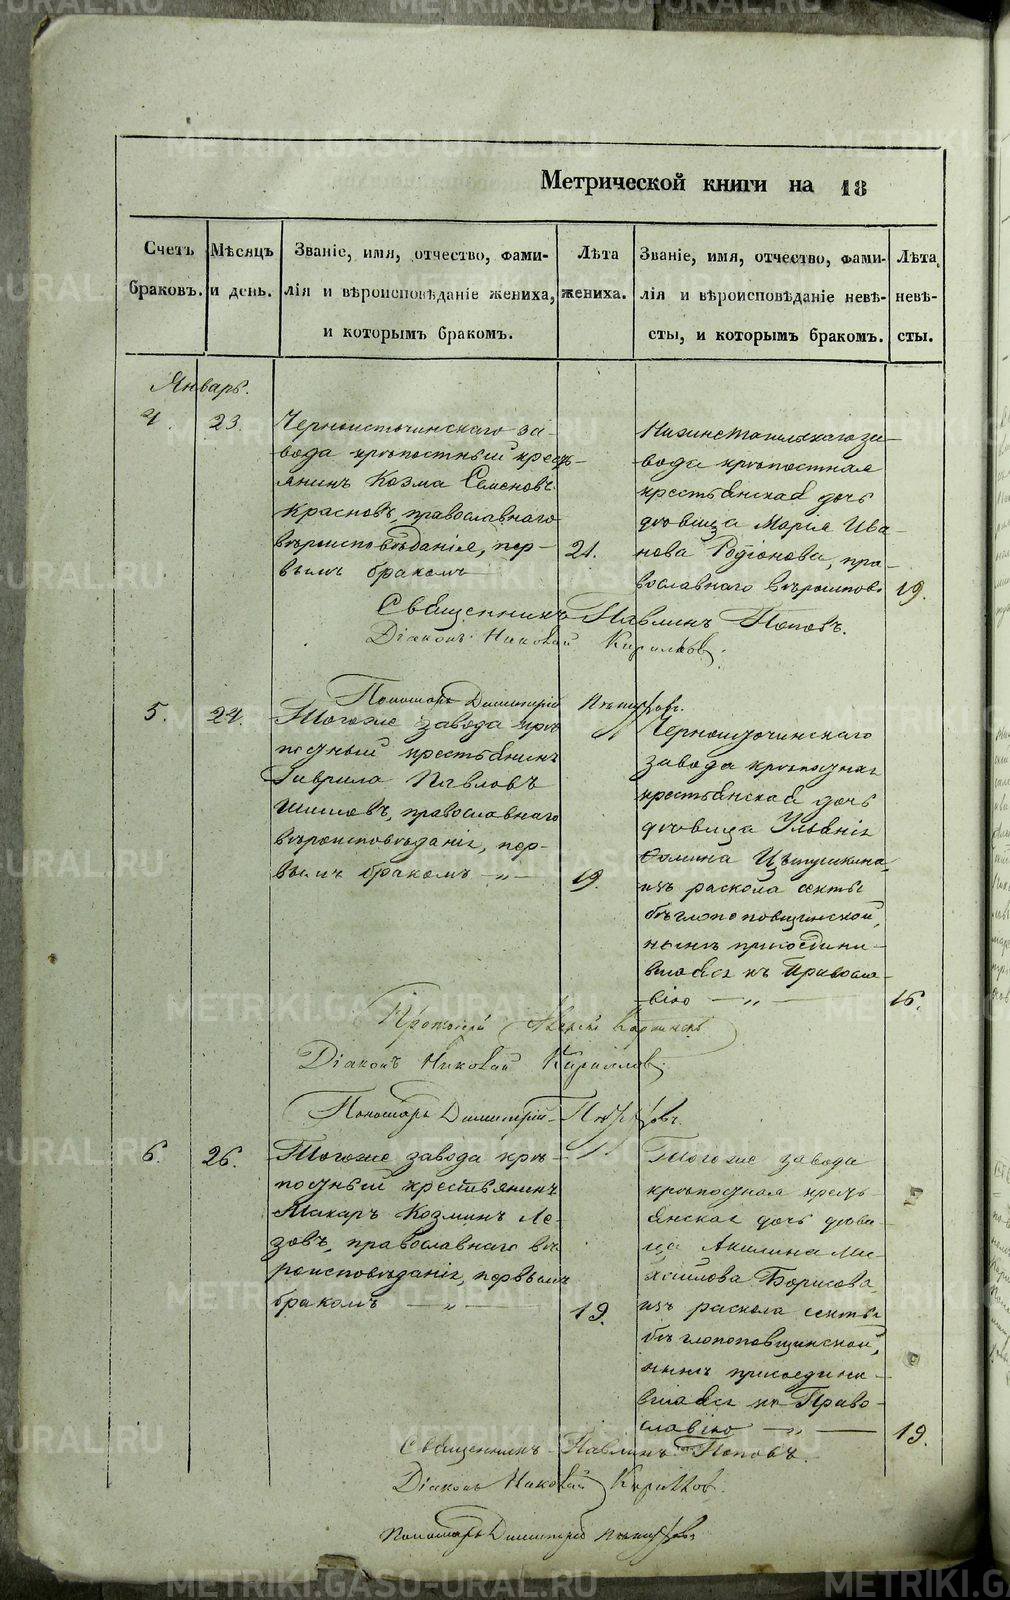 METRIKI.GASO-URAL.RU
Метрической книги на 18
Счетъ браковъ.
Мѣсяцъ и день.
Званіе, имя, отчество, фами-
лія и вѣроисповѣданіе жениха,
и которымъ бракомъ.
Лѣта
жениха.
Званіе, имя, отчество, фами-
лія и вѣроисповѣданіе невѣ-
сты, и которымъ бракомъ.
Лѣта
невѣ-
сты.
Январь.
4.
23.
Черноисточинскаго за-
вода крѣпостный кресть-
янинъ Козма Семеновъ
Красновъ, православнаго
вѣроисповѣданія, пер-
вымъ бракомъ
21.
Нижнетагильскаго за-
вода крѣпостная
крестьянская дочь
дѣвица Марія Ива-
нова Родіонова, пра-
вославнаго вѣроиспов.
19.
Священникъ Павлинъ Поповъ.
Діаконъ Николай Кирилловъ.
Пономарь Димитрій
5.
24.
Тогоже завода крѣ-
постный крестьянинъ
Гаврила Павловъ
Шиловъ, православнаго
вѣроисповѣданія, пер-
вымъ бракомъ — „ —
19.
Черноисточинскаго
завода крѣпостная
крестьянская дочь
дѣвица Ульянія
Фомина
изъ раскола секты
бѣглопоповщинской,
нынѣ присоедини-
вшаяся къ Правосла-
вію — „ —
16.
Протоіерей
Діаконъ Николай Кирилловъ.
Пономарь Димитрій
6.
26.
Тогоже завода крѣ-
постный крестьянинъ
Макаръ Козминъ Ле-
зовъ, православнаго вѣ-
роисповѣданія, первымъ
бракомъ — „ —
19.
Тогоже завода
крѣпостная кресть-
янская дочь дѣви-
ца Акилина Ми-
хаилова Борисова,
изъ раскола секты
бѣглопоповщинской,
нынѣ присоедини-
вшаяся къ Право-
славію — „ —
19.
Священникъ Павлинъ Поповъ.
Діаконъ Николай Кирилловъ.
Пономарь Димитрій